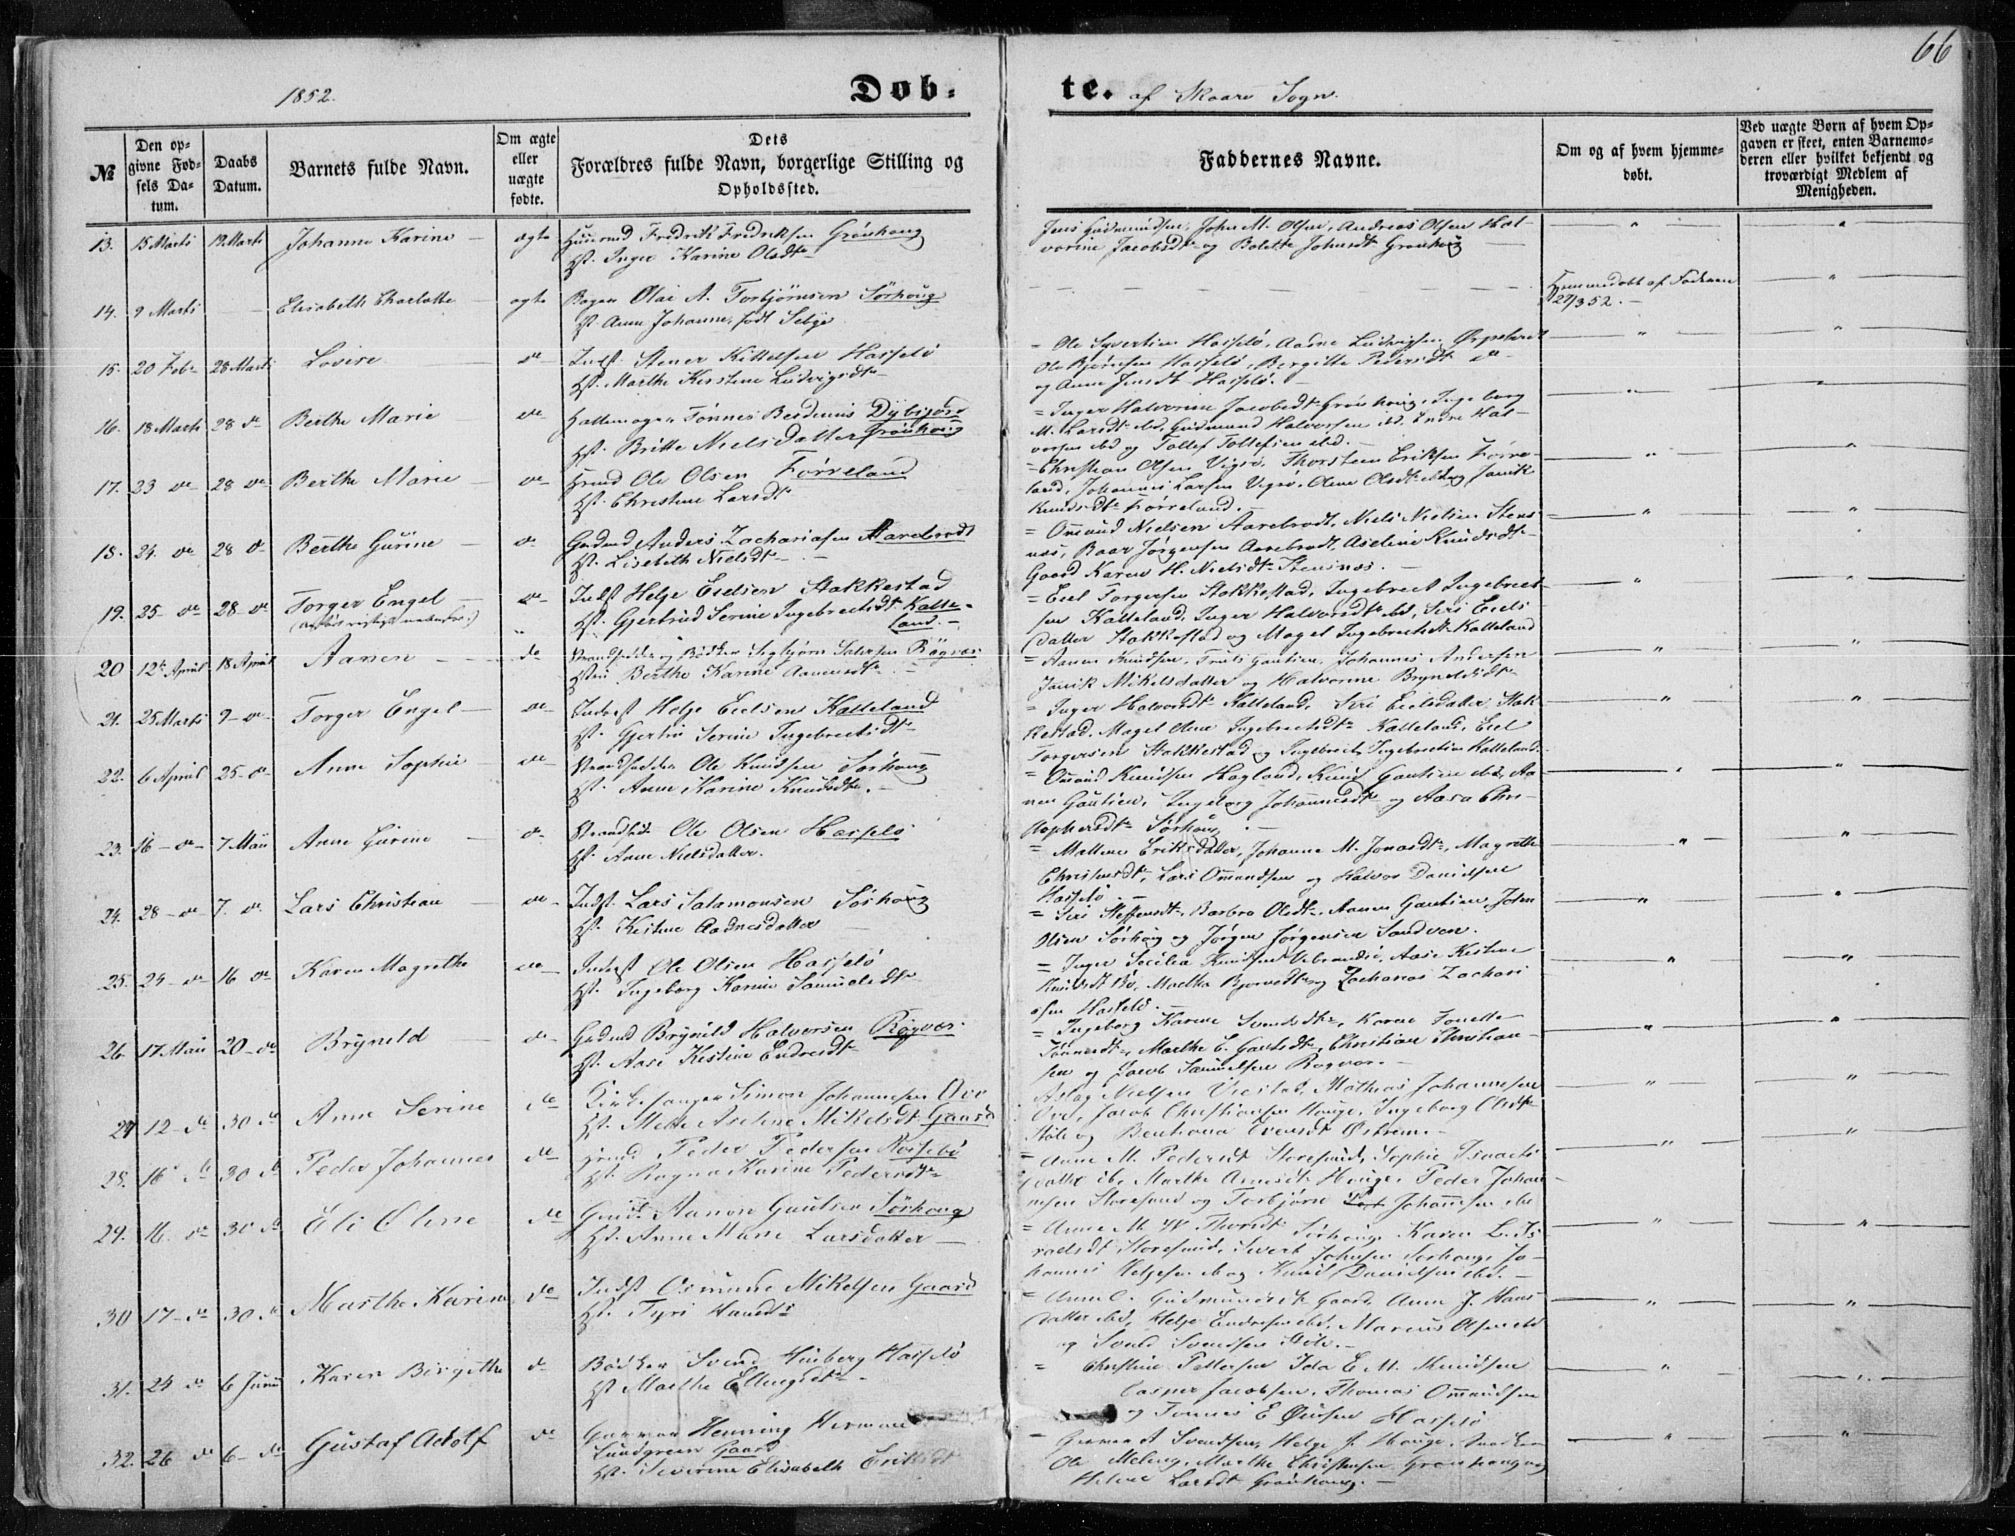 66
1852.
Døb-
te. af Skaare Sogn.
№
Den opgivne Fødsels Datum.
Daabs Datum.
Barnets fulde Navn.
Om ægte eller uægte fødte.
Dets
Forældres fulde Navn, borgerlige Stilling og
Opholdssted.
Faddernes Navne.
Om og af hvem hjemmedøbt.
Ved uægte Børn af hvem Opgaven er skeet, enten Barnemoderen eller hvilket bekjendt og troværdigt Medlem af Menigheden.
13. 15 Marts 19 Marts Johanne Karine ægte Fredrik Fredriksen Grønhoug
Hst. Inger Karine Olsdt
Jens Gudmundsen, John M. Olsen, Andreas Olsen Hal-
vorine Jacobsdt og Bolette Johnsdt Grønhoug
14. 9 Marts Elisabeth Charlotte ægte Bager Olai A. Torbjørnsen Sørhoug
Hst. Anne Johanne, født Sebye
Hjemmedøbt af Faderen
29/3 52.
15. 20 Febr 28 Marts Lovise do Indst. Stener Kittelsen Hasselø
Hst. Marthe Kirstine Ludvigsdt
= Ole Syvertsen Hasselø, Aadne Ludvigsen
Ole Bjørnsen Hasselø, Birgitte Pedersdt do
og Anne Jensdt Hasselø.
16. 18 Marts 28 do Berthe Marie do Hattemager Tønnes Berdenius Dybsjord
Hst. Britte Nielsdatter Grønhoug
= Inger Halvorine Jacobsdt Grønhoug, Ingeborg
M. Larsdt ibd, Gudmund Halvorsen ibd. Endre Hal-
vorsen ibd og Tollef Tollefsen ibd.
17. 23 do 28 do Berthe Marie do Grmd Ole Olsen Førreland
Hst. Christine Larsdt
= Christian Olsen Vigsø, Thorsten Eriksen Førre-
land, Johannes Larsen Vigsø, Olene Olsdt ibd og Janik
Knudsdt Førreland.
18. 24. do 28 do Berthe Gurine do Gaardmd Anders Zachariasen Aarebrodt
Hst. Lisebeth Nielsdt
= Omund Nielsen Aarebrodt, Niels Nielsen Stens-
næs, Baar Jørgensen Aarebrodt, Aselene Knudsdt
Gaard Karen H. Nielsdt Stensnæs.
19. 25 do 28 do Torger Engel do Indst Helge Eielsen Stakkestad
Hst. Gjertrud Serine Ingebretsdt Kalle-
land.
= Eiel Torgersen Stakkestad, Ingebret Ingebret-
sen Kalleland, Inger Halvorsdt ibd, Siri Eiels
datter Stakkestad og Magel Ingebretsdt Kalleland
20 12te April 18 April Aanen do Strandsidder og Bødker Sigbjørn Salvesen Røgvær
Hstru Berthe Karine Aanensdt
= Aanen Knudsen, Truls Gautsen, Johannes Andersen
Janik Mikelsdatter og Halvorine Brynildsdt
21. 25 Marts 9 do Torger Engel do Inderst Helge Eielsen Kalleland
Hst. Gjertru Serine Ingebretsdt
= Inger Halvorsdt Kalleland, Siri Eielsdatter Stak
kestad, Magel Olene Ingebretsdt Kalleland, Eiel
Torgersen Stakkestad og Ingebret Ingebretsen Kalleland.
22. 6 April 25 do Anne Sophie do Strandsidder Ole Knudsen Sørhoug
Hst. Anne Karine Knudsdt.
= Omund Knudsen Hagland, Knud Gautsen ibd, Aa-
nen Gautsen, Ingeborg Johannesdt og Aasa Chri-
stophersdt Sørhoug
23. 16 do 7 Maii Anne Gurine do Strandsid. Ole Olsen Hasselø
Hst. Anne Nielsdatter.
= Mallene Eriksdatter, Johanne M. Jonasdt, Magrethe
Christensdt, Lars Omundsen og Halvor Danielsen
Hasselø
24. 28 do 7. do. Lars Christian do Indst. Lars Salamonsen Sørhoug
Hst. Kistine Aadnesdatter
= Siri Steffensdt, Barbro Olsdt, Aanen Gautsen, John
Olsen Sørhoug og Jørgen Jørgensen Sandven.
25. 24 do 16 do Karen Magrethe do Inderst Ole Olsen Hasselø
Hst. Ingeborg Karine Samuelsdt
= Inger Secilia Knudsdt Vibrandsø, Aase Kistine
Knudsdt Bø, Martha Bjornsdt og Zacharias Zachari
asen Hasselø.
26. 17 Maii 20 do Bryneld do Gaardmd Brynild Halvorsen Røgvær
Hst. Aase Kistine Endresdt
= Ingeborg Karine Svendsdt, Karen Tonette
Tønnesdt, Marthe E. Gautsdt, Christian Christian-
sen og Jacob Samuelsen Røgvær.
27 12 do 30 do Anne Serine do Kirkesanger Simon Johannesen Qve
Hst. Mette Aselene Mikelsdt Gaard
Aslag Nielsen, Mathias Johannesen
Qve, Jacob Christiansen Houge, Ingeborg Olsdt
Støle og Bentiana Østrem.
28. 16 do 30 do Peder Johannes do Grmd Peder Pedersen Rossebø
Hst. Ragna Karine Pedersdt
= Anne M. Pedersdt Storesund, Sophie Israels
datter ib, Marthe Arnesdt Houge, Peder Johan-
nesen Storesund og Torbjørn Johannesen ibd
29. 16. do 30 do Eli Oline do Grmd. Aanen Gautsen Sørhoug
Hst. Anne Marie Larsdatter
= Anne M. W. Thorsdt Sørhoug, Karen L. Is
raelsdt Storesund, Sivert Johnsen Sørhoug, Jo-
hannes Helgesen ib og Knud Danielsen ibd.
30 17 do 30 do Marthe Karine do Indst Osmund Mikelsen Gaard
Hst. Tyri Hansdt
= Anne O. Gudmundsdt Gaard, Anne J. Hans
datter ibd, Helge Endresen ibd, Marcus Olsen ibd
og Svend Svendsen Støle.
31. 24 do 6 Junii Karen Birgithe do Bødker Svend Hasselø
Hst Marthe Ellingsdt
= Christine Pettersen Ida E. M. Knudsen
Casper Jacobsen, Thomas Omundsen
og Tønnes E Hasselø
32. 26 do 6 do Gustaf Adolf do Garver Henning Herman
Lundgreen Gaard
Hst. Severine Elisabeth Eriksdt
= Svendsen, Helge J. Houge,
Ole Meling, Marthe Christensen Grønhoug og
Helene Larsdt Grønhoug.